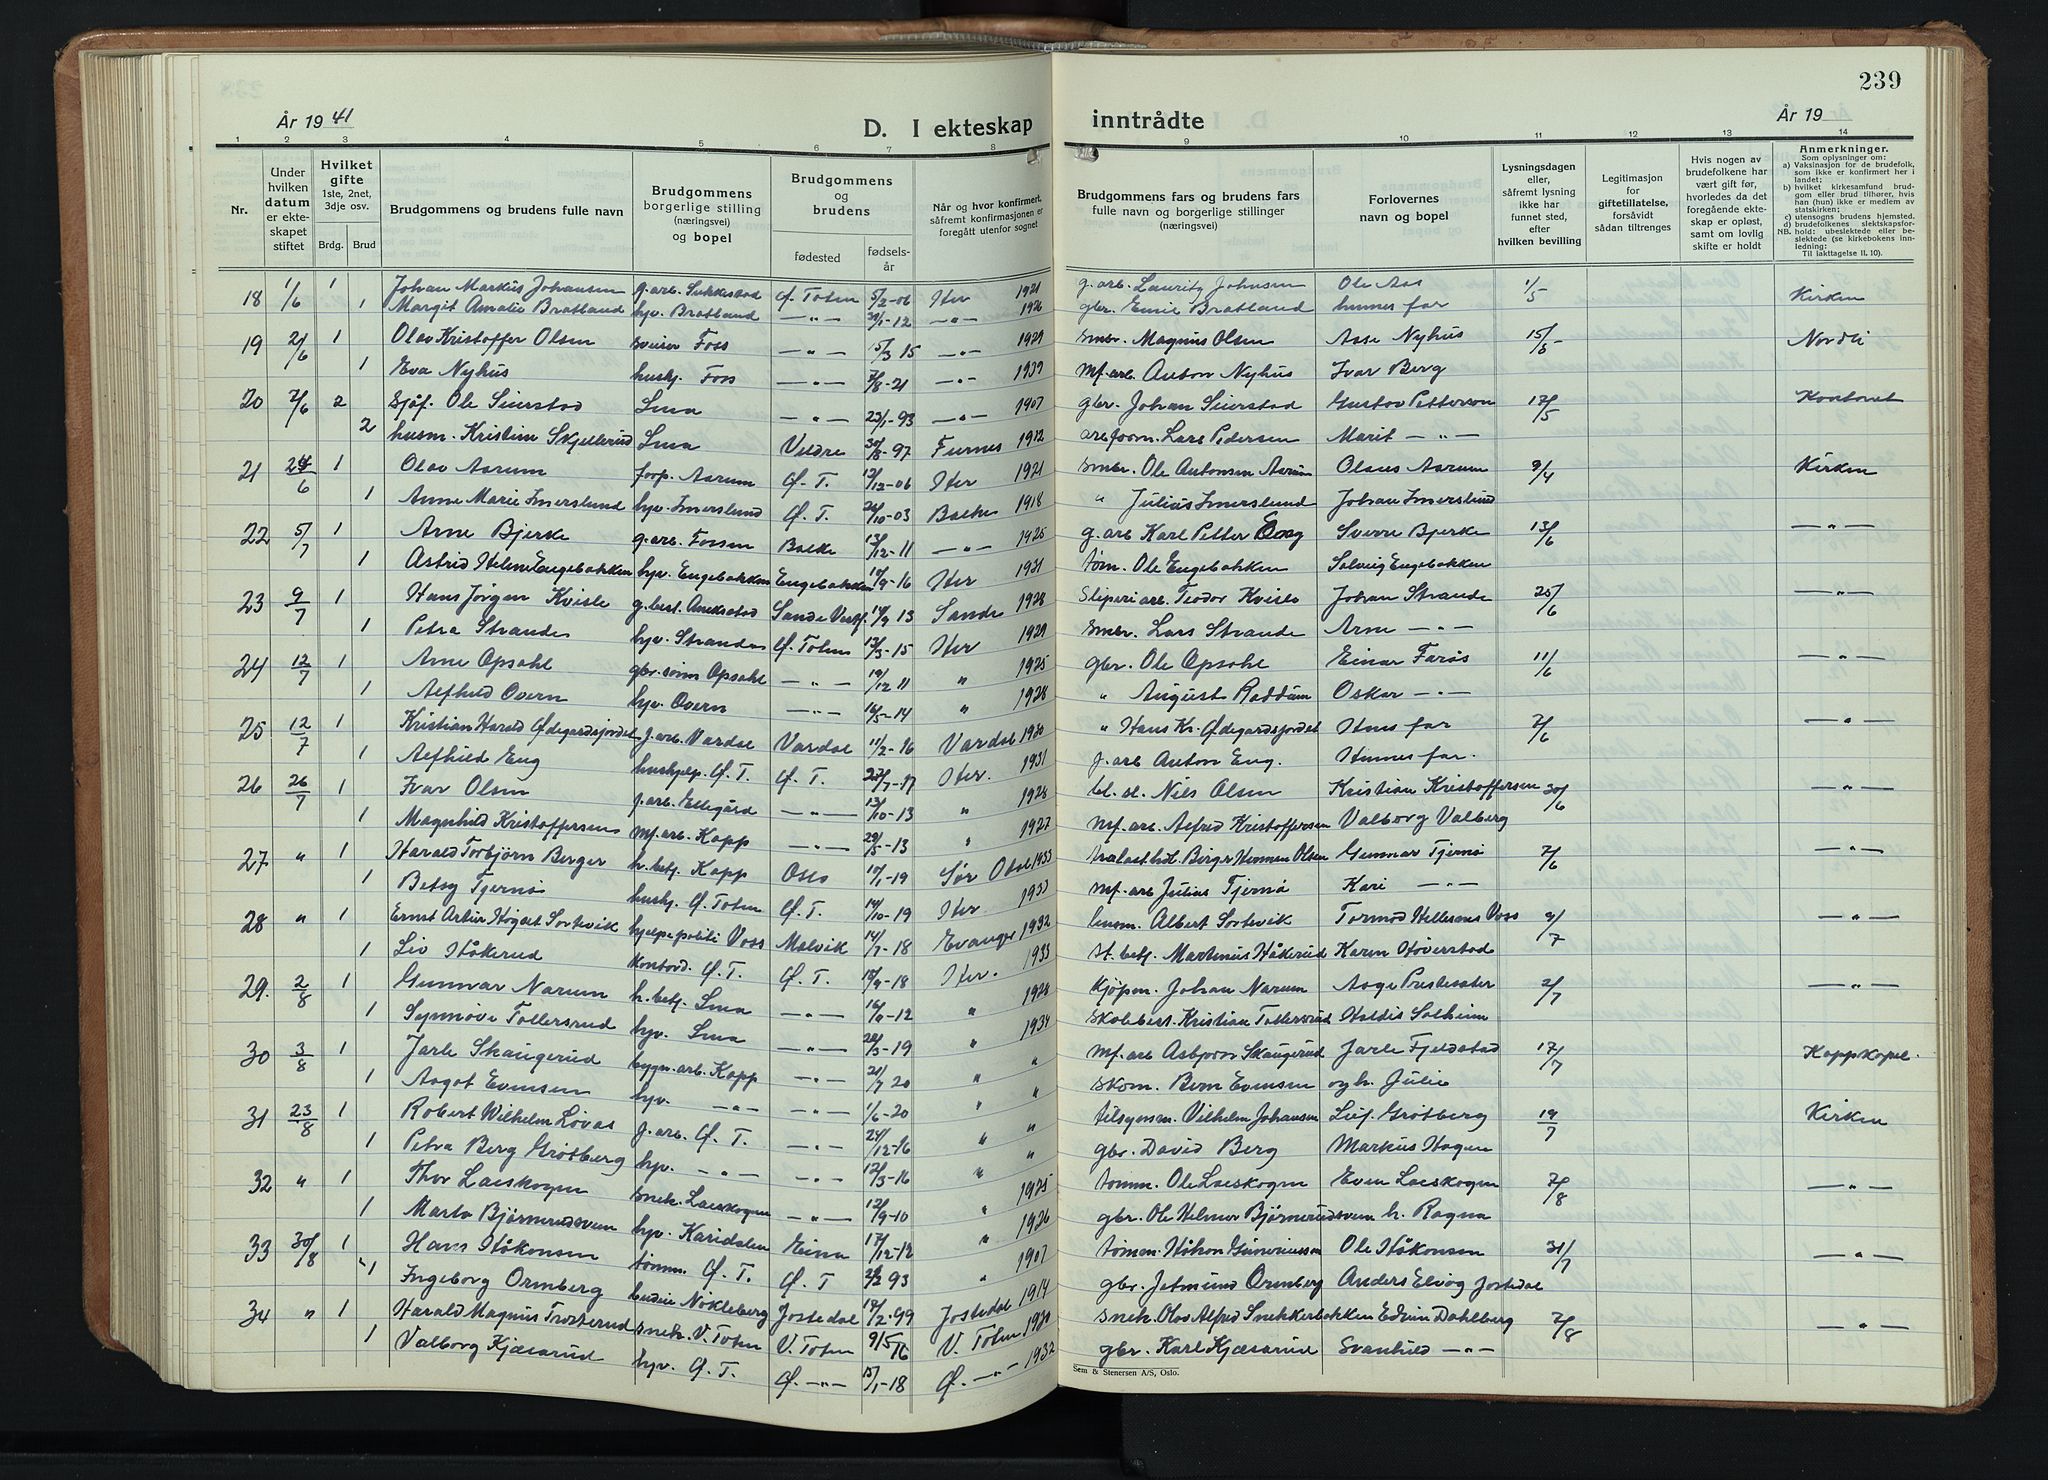 239
År 19 41
D. I ekteskap inntrådte
År 19
1 2 3 4 5 6 7 8 9 10 11 12 13 14
Nr.
Under hvilken datum er ekteskapet stiftet
Hvilket gifte 1ste, 2net, 3dje osv.
Brdg. Brud
Brudgommens og brudens fulle navn
Brudgommens borgerlige stilling (næringsvei) og bopel
Brudgommens og brudens
fødested
fødselsår
Når og hvor konfirmert, såfremt konfirmasjonen er foregått utenfor sognet
Brudgommens fars og brudens fars fulle navn og borgerlige stillinger (næringsvei)
Forlovernes navn og bopel
Lysningsdagen eller, såfremt lysning ikke har funnet sted, efter hvilken bevilling
Legitimasjon for giftetillatelse, forsåvidt sådan tiltrenges
Hvis nogen av brudefolkene har vært gift før, hvorledes da det foregående ekteskap er opløst, samt om lovlig skifte er holdt
Anmerkninger.
Som oplysninger om:
a) Vaksinasjon for de brudefolk, som ikke er konfirmert her i landet;
b) hvilket kirkesamfund brudgom eller brud tilhører, hvis han (hun) ikke er medlem av statskirken;
c) utensogns brudens hjemsted.
d) brudefolkenes slektskapsforhold: ubeslektede eller beslektede (se kirkebokens innledning: Til iakttagelse II, 10).
NB.
18 1/6 1 Johan Markus Johansen g.arb. Sukkestad Ø. Toten 5/2-06 Her 1921 g.arb. Lauritz Johnsen Ole Aas 1/5 Kirken
1 Margit Amalie Bratland hjv. Bratland —"— 29/1-12 —"— 1926 gbr. Emil Bratland hennes far
19 2/6 1 Olav Kristoffer Olsen sveiser Foss —"— 15/3 15 —"— 1929 smbr. Magnus Olsen Asse Nyhus 15/5 Nordli
1 Eva Nyhus hushj. Foss —"— 7/8-21 —"— 1939 mf.arb. Anton Nyhus Ivar Berg
20 7/6 2 Sjåf. Ole Seierstad Lena —"— 22/1-93 —"— 1907 gbr. Johan Seierstad Gustav Petterson 17/5 Kontoret
2 husm. Kristine Skjellerud Lena Veldre 30/8-97 Furnes 1912 arb.form. Lars Pedersen Marit —"—
21 24/6 1 Olav Aarum forp. Aarum Ø. T. 12/12-06 Her 1921 smbr. Ole Antonsen Aarum Olaus Aarum 9/4 Kirken
1 Anne Marie Imerslund hjv. Imerslund Ø. T. 24/10-03 Balke 1918 " Julius Imerslund Johan Imerslund
22 5/7 1 Arne Bjerke g.arb. Fossen Balke 13/12-11 —"— 1925 g.arb. Karl Petter Sverre Bjerke 13/6 —"—
1 Astrid Helene Engebakken hjv. Engebakken Engebakken 10/9-16 Her 1931 tøm. Ole Engebakken Solveig Engebakken
23 9/7 1 Hans Jörgen Kvisle g.best. Sande Vestf. 14/9 13 Sande 1928 Sliperiarb. Teodor Kvisle Johan Strande 25/6 —"—
1 Petra Strande hjv. Strande Ø. Toten 13/3-15 Her 1929 smbr. Lars Strande Arne —"—
24 12/7 1 Arne Opsahl gbr.sønn Opsahl —"— 19/12 11 " 1925 gbr. Ole Opsahl Einar Farøs 11/6 —"—
1 Alfhild Overn hjv. Overn —"— 16/5-14 " 1928 " August Raddum Oskar —"—
25 12/7 1 Kristian Harald Ødegårdsjordet j.arb. Vardal Vardal 11/2-16 Vardal 1930 " Hans Kr. Ødegårdsjordet Hans far 7/6 —"—
1 Alfhild Eng hushjelp. Ø. T. Ø. T. 27/7-17 Her. 1931 j.arb Anton Eng. Hennes far.
26 26/7 1 Ivar Olsen j.arb. Ellegård —"— 13/10-13 " 1928 Nils Olsen Kristian Kristoffersen 30/6 —"—
1 Magnhild Kristoffersen mf.arb. Kapp —"— 29/5-13 " 1927 mf.arb. Alfred Kristoffersen Valborg Valberg
27 " 1 Harald Torbjørn Berger h.betj. Kapp Oslo 10/1-19 Sør Odal 1933 Birger Herman Olsen Gunnar Tjernø 7/6 —"—
1 Betsy Tjernø hushj. Ø. Toten Ø. T. 14/10-19 Her 1933 mf.arb Julius Tjernø Kari —"—
28 " 1 Ernst Artur Högalt Sortevik hjelpepoliti Voss Malvik 14/7-18 Evanger 1932 lensm. Albert Sortevik Tormod Hellesnes Voss 9/7 —"—
1 Liv Håkerud kontord. Ø. T. Ø. T. 18/9-18 Her. 1933 st.betj. Martinus Håkerud Karen Høverstad
29. 2/8 1 Gunnar Narum h.betj. Lena —"— 16/9-12 " 1928 Kjöpm. Johan Narum Aage Prestesæter 2/7 —"—
1 Synnøve Tollersrud hjv. Lena —"— 28/3-19 " 1934 Skolebest. Kristian Tollersrud Haldis Solheim
30 3/8 1 Jarle Skaugerud bygn.arb. Kapp —"— 21/7 20 " " mf.arb Asbjørn Skaugerud Jarle Fjeldstad 17/7 Kapp kapel.
1 Aagot Evensen hjv. —"— —"— 1/6-20 " " skom. Bern Evensen og h. Julie
31 23/8 1 Robert Wilhelm Løvås j.arb. Ø. T. —"— 24/12-16 " " tilsynsm. Vilhelm Johansen Leif Grøtberg 19/7 Kirken
1 Petra Berg Grøtberg hjv. —"— —"— 12/3-16 " " gbr. David Berg Markus Hagen
32 " 1 Thor Laeskogen snek. Laeskogen —"— 12/9-10 " 1925 tømm. Ole Laeskogen Even Laeskogen 7/8 —"—
1 Marta Bjørnerudsveen hjv. Karidalen Eina 17/12-12 " 1926 gbr. Ole Helmer Bjørnerudsveen h. Ragna
33 30/8 1 Hans Håkonsen tømm. Ø. T. Ø. T 2/2 93 " 1907 tømm. Håkon Gunneriussen Ole Håkonsen 31/7 —"—
1 Ingeborg Ormberg budeie Nøkleberg Jostedal 19/2-99 Jostedal 1914 gbr. Jetmund Ormberg Anders Elvog Jostedal
34 " 1 Harald Magnus Trosterud snek. V. Toten V. Toten 9/5 16 V. Toten 1930 snek. Olav Alfred Snekkerbakken Edvin Dahlberg 7/8 —"—
1 Valborg Kjæsarud hjv. Ø. T. Ø. —"— 15/1-18 Ø. —"— 1932 gbr. Karl Kjæsarud Svanhild —"—
Sem & Stenersen A/S, Oslo.